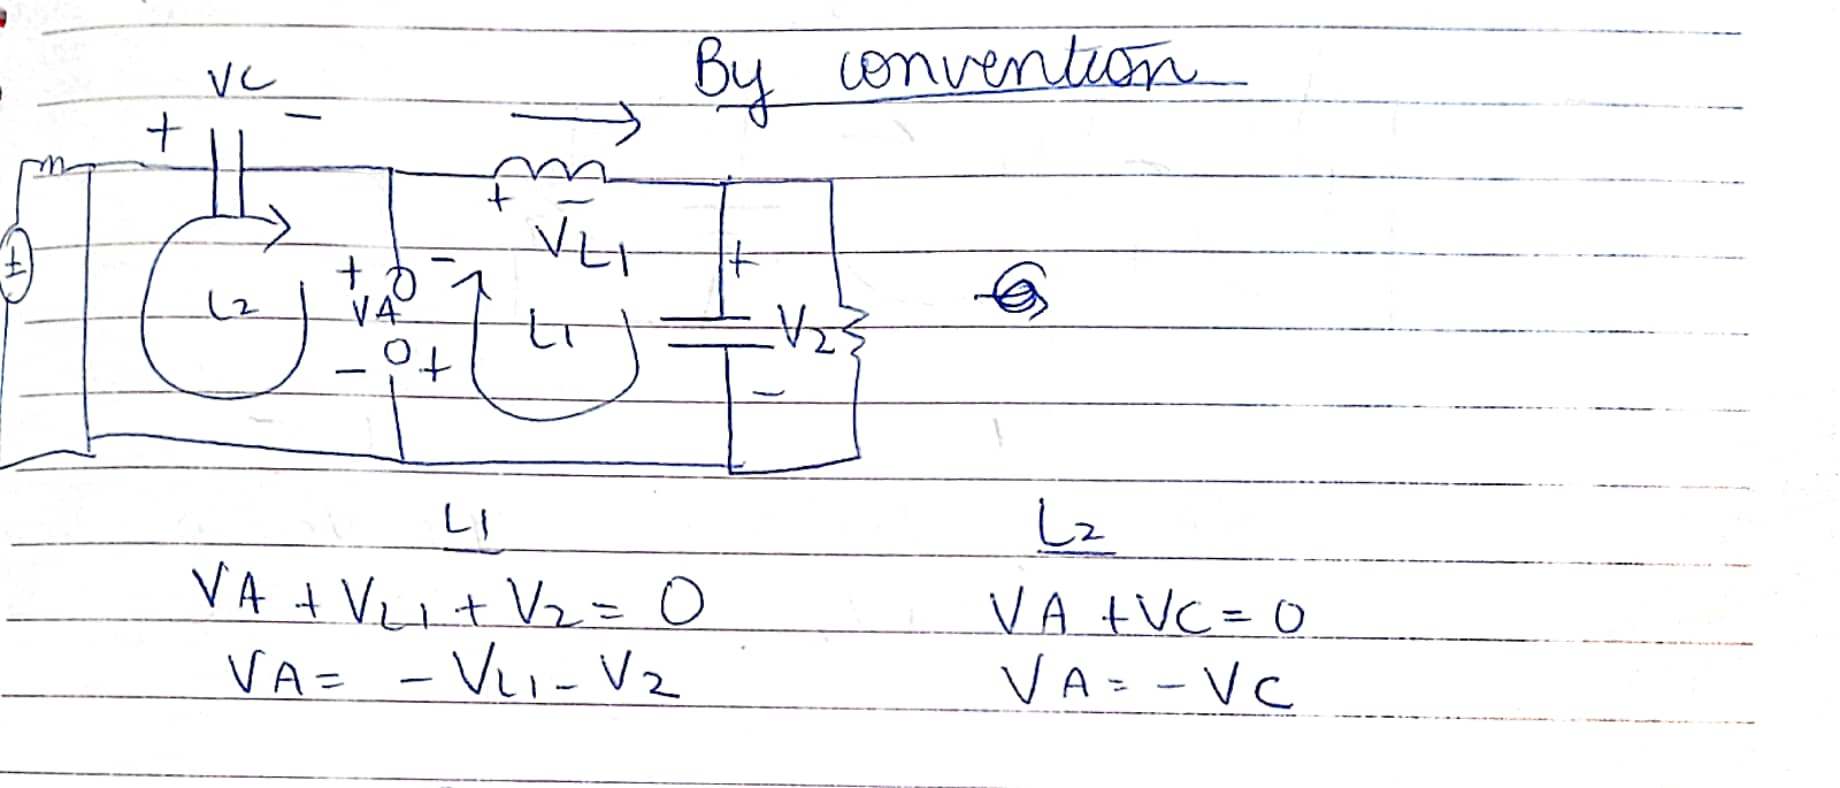 By convention
VC
+ -
+ -
VL1
±
L2
+ -
VA
- +
L1
+
V2
-
L1 L2
VA + VL1 + V2 = 0 VA + VC = 0
VA = - VL1 - V2 VA = - VC